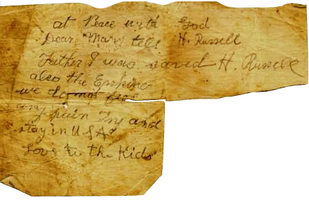 at with God
Dear Mary, tell H. Russell
Father I was saved H. Russell
also the
we do not
any pain Try and
stay in USA
Love to the Kids